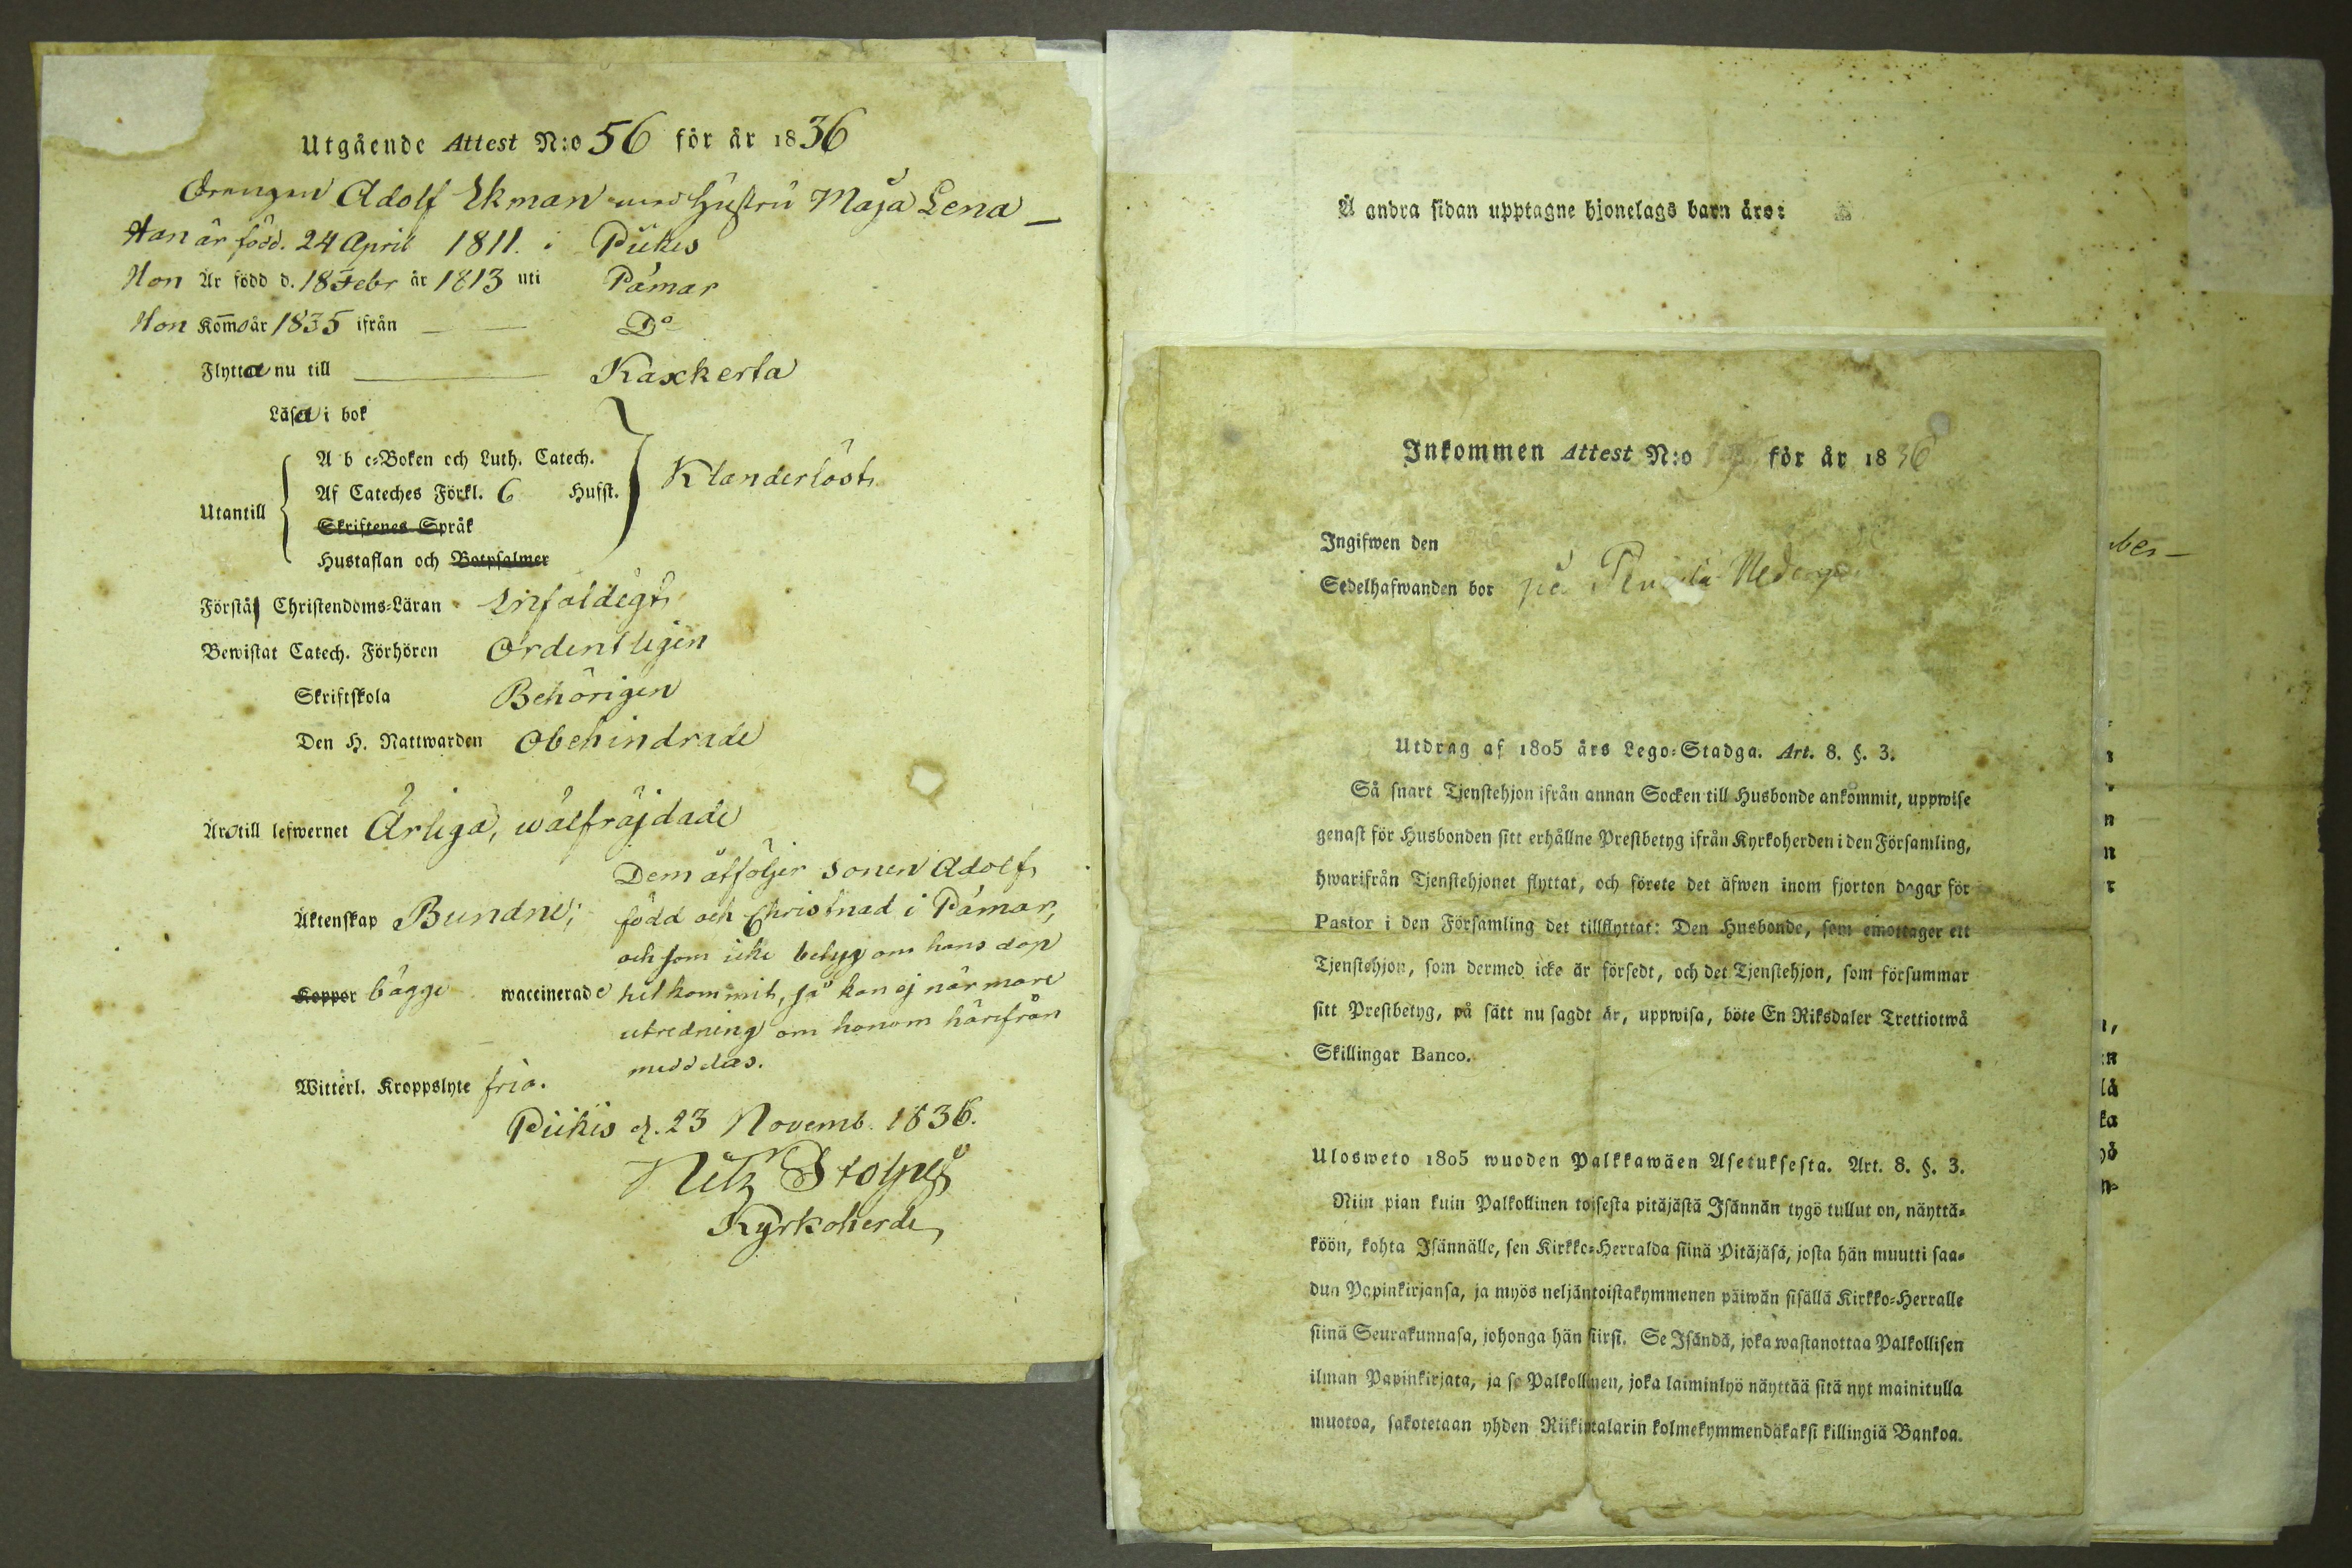 Utgående Attest N:o 56 för år 1836
Drengen Adolf Ekman med Hustru Maja Lena —
Han är född. 24 April 1811. i Piikis
Hon Är född d. 18 Febr år 1813 uti Pämar
Hon Kom̄o år 1835 ifrån — — Do
Flytta nu till — Kaxkerta
Läsa i bok
A b c-Boken och Luth. Catech.
Af Cateches Förkl. 6 Hufst. Klanderlöst
Utantill
Skriftenes Språk
Hustaflan och Botpsalmer
Förstå Christendoms-Läran Enfaldigt
Bewistat Catech. Förhören Ordentligen
Skriftskola Behörigen
Den H. Nattwarden Obehindrade
Äro till lefwernet Ärliga, wälfräjdade
Dem åtföljer sonen Adolf,
Äktenskap Bundne; född och Christnad i Pämar,
och som icke betyg om hans dop
Koppor bägge waccinerade hitkommit, så kan ej närmare
utredning om honom härifrån
meddelas.
Witterl. Kroppslyte fria.
Piikis d. 23 Novemb. 1836.
Kyrkoherde
Å andra sidan upptagne hjonelags barn äro:
Inkommen Attest N:o för år 1836
Ingifwen den
Sedelhafwanden bor på
Utdrag af 1805 års Lego-Stadga. Art. 8. §. 3.
Så snart Tjenstehjon ifrån annan Socken till Husbonde ankommit, uppwise
genast för Husbonden sitt erhållne Prestbetyg ifrån Kyrkoherden i den Församling,
hwarifrån Tjenstehjonet flyttat, och förete det äfwen inom fjorton dagar för
Pastor i den Församling det tillflyttat: Den Husbonde, som emottager ett
Tjenstehjon, som dermed icke är försedt, och det Tjenstehjon, som försummar
sitt Prestbetyg, på sätt nu sagdt är, uppwisa, böte En Riksdaler Trettiotwå
Skillingar Banco.
Ulosweto 1805 wuoden Palkkawäen Asetuksesta. Art. 8. §. 3.
Niin pian kuin Palkollinen toisesta pitäjästä Isännän tygö tullut on, näyttä-
köön, kohta Isännälle, sen Kirkko-Herralda siinä Pitäjäsä, josta hän muutti saa-
dun Papinkirjansa, ja myös neljäntoistakymmenen päiwän sisällä Kirkko-Herralle
siinä Seurakunnasa, johonga hän siirsi. Se Isändä, joka wastanottaa Palkollisen
ilman Papinkirjata, ja se Palkollinen, joka laiminlyö näyttää sitä nyt mainitulla
muotoa, sakotetaan yhden Riikintalarin kolmekymmendäkaksi killingiä Bankoa.